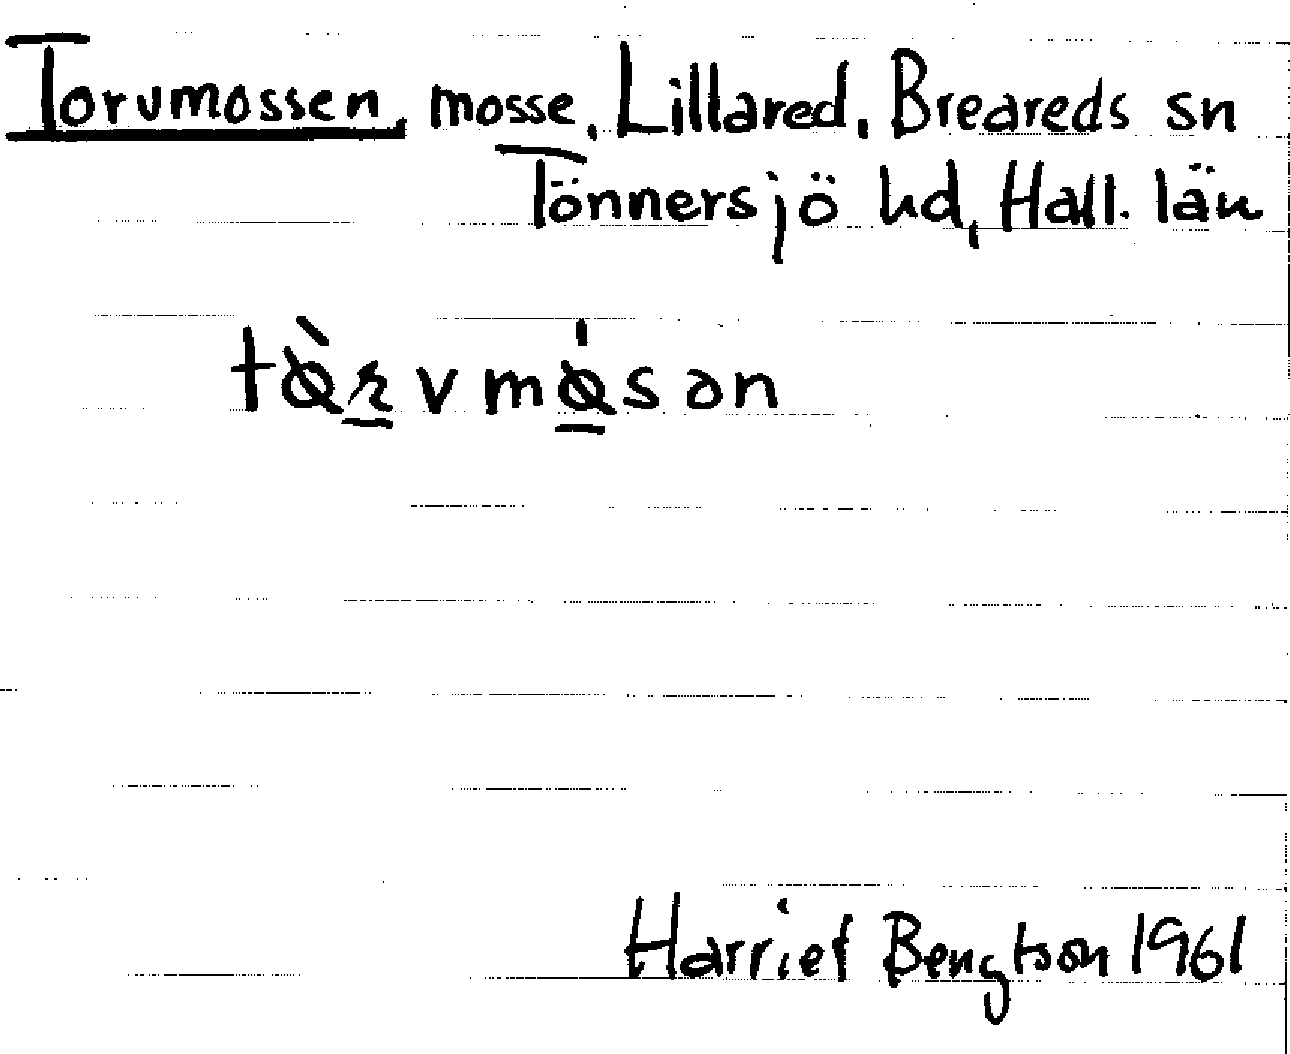 Torvmossen, mosse, Lillared, Breareds sn
Tönnersjö hd, Hall. län
Harriet Bengtson 1961